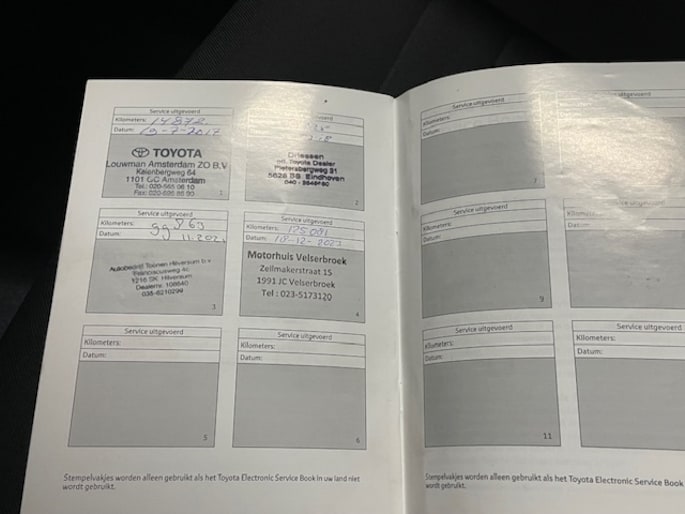 Service uitgevoerd
Kilometers: 14872
Datum: 19-7-2017
TOYOTA
Louwman Amsterdam ZO B.V
Keienbergweg 64
1101 GC Amsterdam
Tel.: 020-565 06 10
1
Driessen
Toyota Dealer
Pietersbergweg 31
Eindhoven
2
Service uitgevoerd
Kilometers:
Datum: 11.202
Autobedrijf Toonen Hilversum b.v
Franciscusweg 4c
1216 SK Hilversum
Dealernr. 108640
035-6216298
3
Service uitgevoerd
Kilometers: 125091
Datum: 18-12-2023
Motorhuis Velserbroek
Zeilmakerstraat 15
1991 JC Velserbroek
Tel : 023-5173120
4
Service uitgevoerd
Kilometers:
Datum:
5
Service uitgevoerd
Kilometers:
Datum:
6
Stempelvakjes worden alleen gebruikt als het Toyota Electronic Service Book in uw land niet
wordt gebruikt.
Service uitgevoerd
Kilometers:
Datum:
7
Service uitgevoerd
Kilometers:
Datum:
9
Service uitgevoerd
Kilometers:
Datum:
Service uitgevoerd
Kilometers:
Datum:
11
Service uitgevoerd
Kilometers:
Datum:
Stempelvakjes worden alleen gebruikt als het Toyota Electronic Service Book
wordt gebruikt.